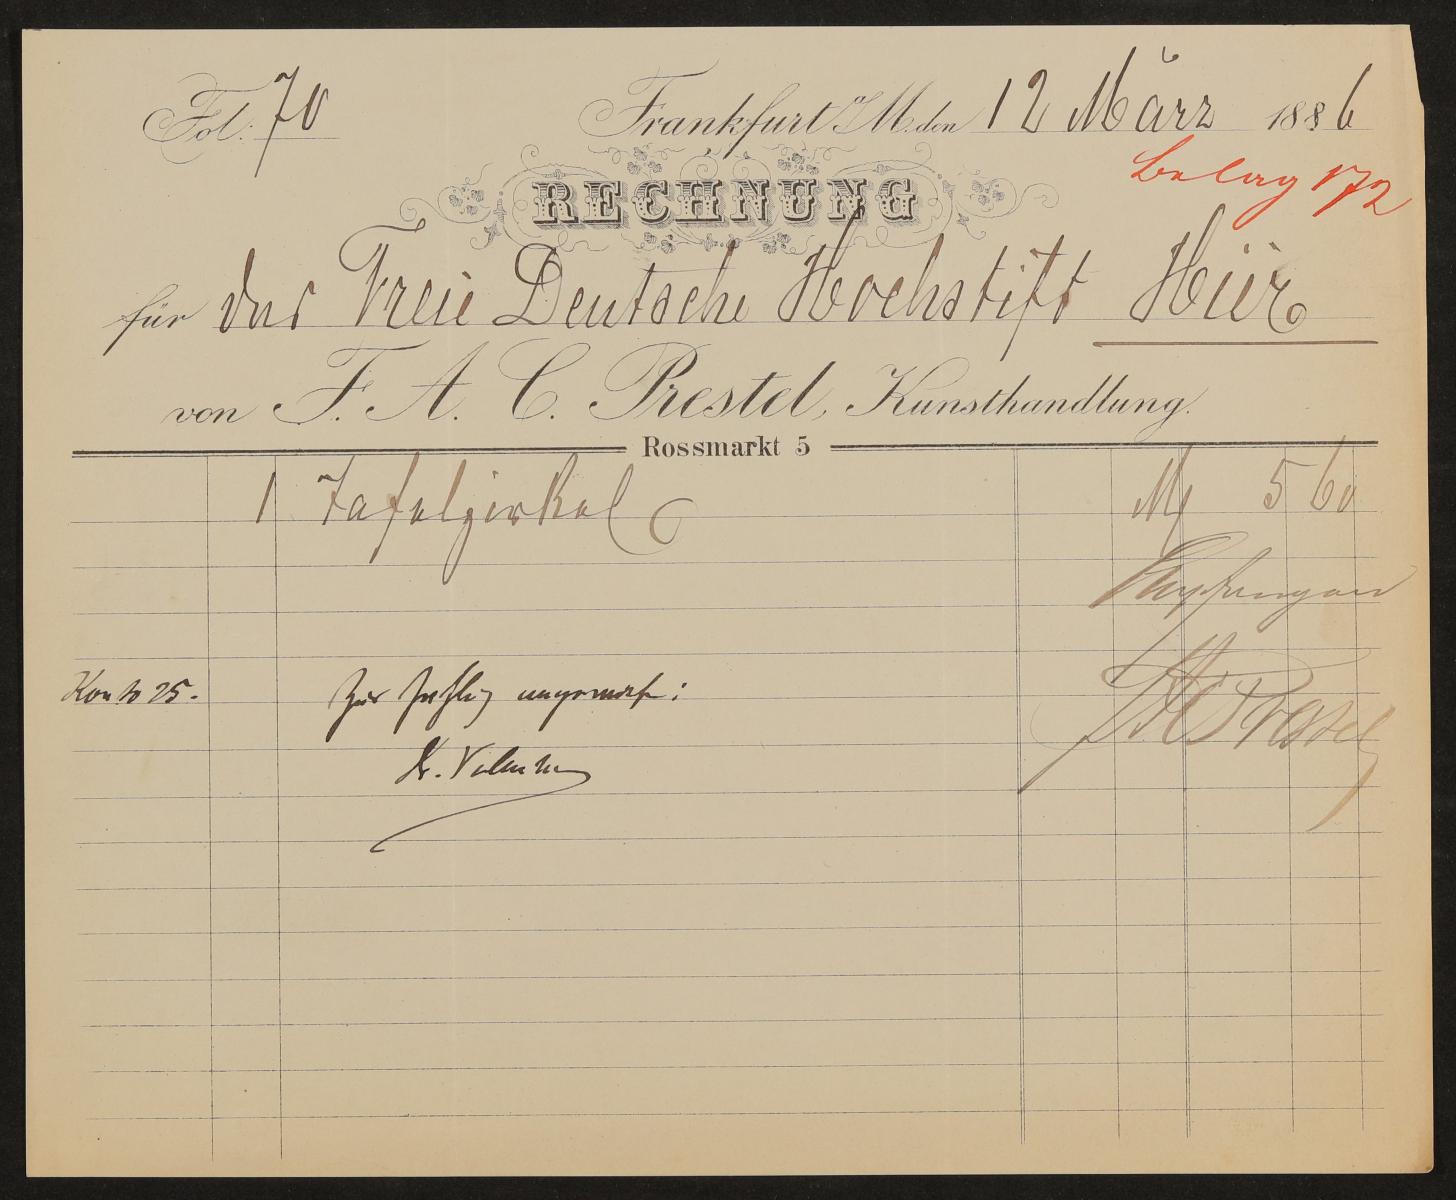 Fol. 70
Frankfurt a/M. den 12 März 1886
Beleg 172
RECHNUNG
für das Freie Deutsche Hochstift Hier
von F. A. C. Prestel, Kunsthandlung.
Rossmarkt 5
1 Tafelzirkel M 5 60
Empfangen
Konto 25. Zur Zahlg angewiesen:
FAC Prestel
Dr. Volger